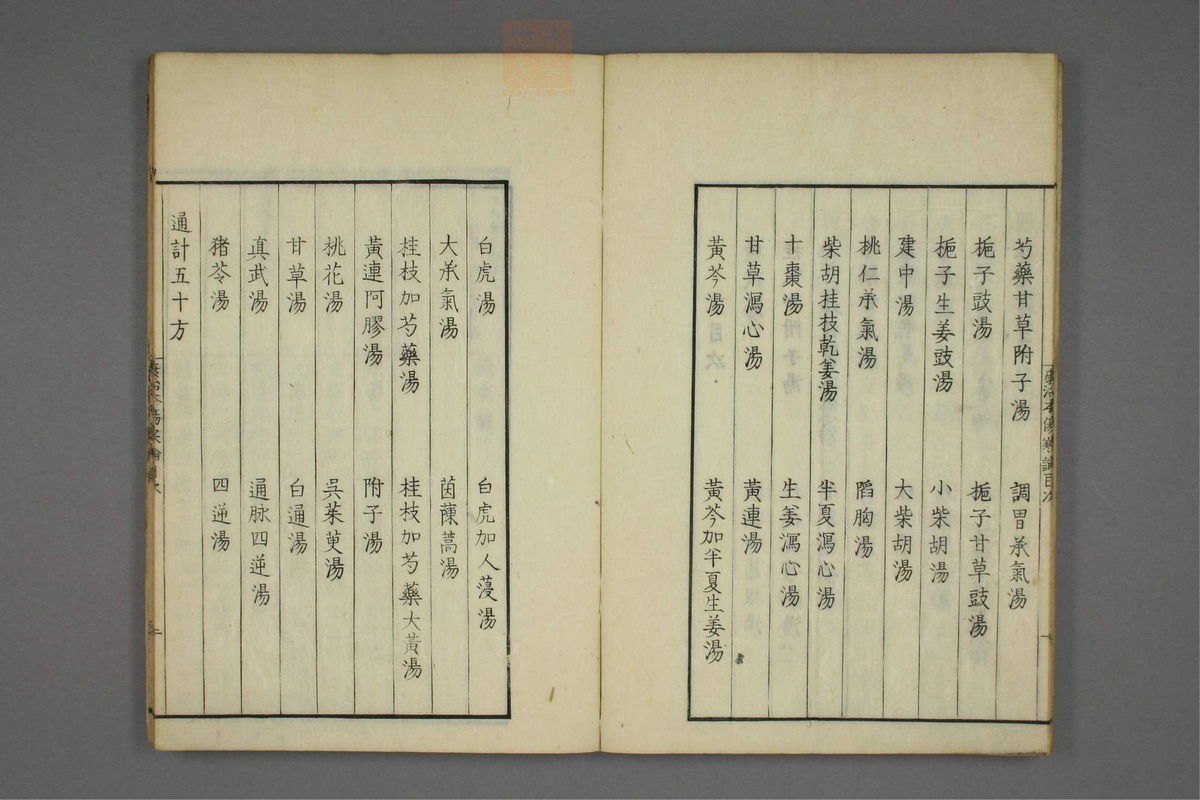 芍藥甘草附子湯　調胃承氣湯
梔子豉湯　梔子甘草豉湯
梔子生姜豉湯　小柴胡湯
建中湯　大柴胡湯
桃仁承氣湯　陷胸湯
柴胡桂枝乾姜湯　半夏瀉心湯
十棗湯　生姜瀉心湯
甘草瀉心湯　黃連湯
黃芩湯　黃芩加半夏生姜湯
康治本傷寒論目次
白虎湯　白虎加人蓡湯
大承氣湯　茵蔯蒿湯
桂枝加芍藥湯　桂枝加芍藥大黃湯
黃連阿膠湯　附子湯
桃花湯　吳茱萸湯
甘草湯　白通湯
真武湯　通脉四逆湯
猪苓湯　四逆湯
通計五十方